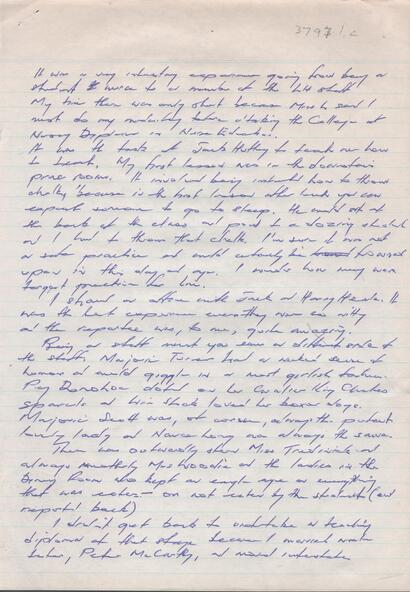 3797 1.c
It was a very interesting experience going from being a
student twice to a member of the staff.
My time there was only short because Miss said I
must do my midwifery before the College of
Nursing Diploma in Nurse Education.
It was the task of Jack to teach me how
to teach. My first lesson was in the downstairs
prac room. It involved being instructed how to throw
chalk, because in the first lesson after lunch you can
expect someone to go to sleep. He would sit at
the back of the class and point to a dozing student
and I had to throw that chalk. I'm sure it was not
a safe practice and would certainly be frowned
upon in this day and age. I wonder how many were
target practice for him.
I shared an office with Jack and Harry
was the best experience everything was so witty
and the repartee was, to me, quite amazing.
Being on staff meant you saw a different side to
the staff. Marjorie Turner had a wicked sense of
humor and would giggle in a most girlish fashion.
Peg Donohoe doted on her Cavalier King Charles
spaniels and loved her boxer dogs.
Marjorie Scott was, of course, always the
lovely lady and was always the same.
There was outwardly stern Miss and
always the ladies in the
Dining Room who kept an eagle eye on everything
that was eaten or not eaten by the students (and
report back)
I didn't get back to undertake a teaching
diploma at that stage because I married
later, Peter McCarthy, and moved interstate